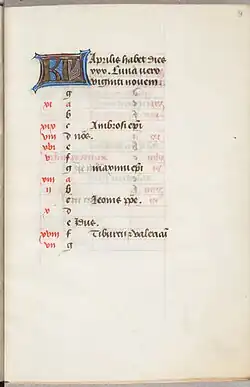 KL Aprilis habet dies
xxx. Luna vero
viginti novem
g
xi a
b
xix c Ambrosi epi
viii d nōs.
xvi e
v f
g maximi epi
xiii a
ii b
c Leonis ppe.
x d
e Idus.
xviii f Tiburcii valeriani
vii g